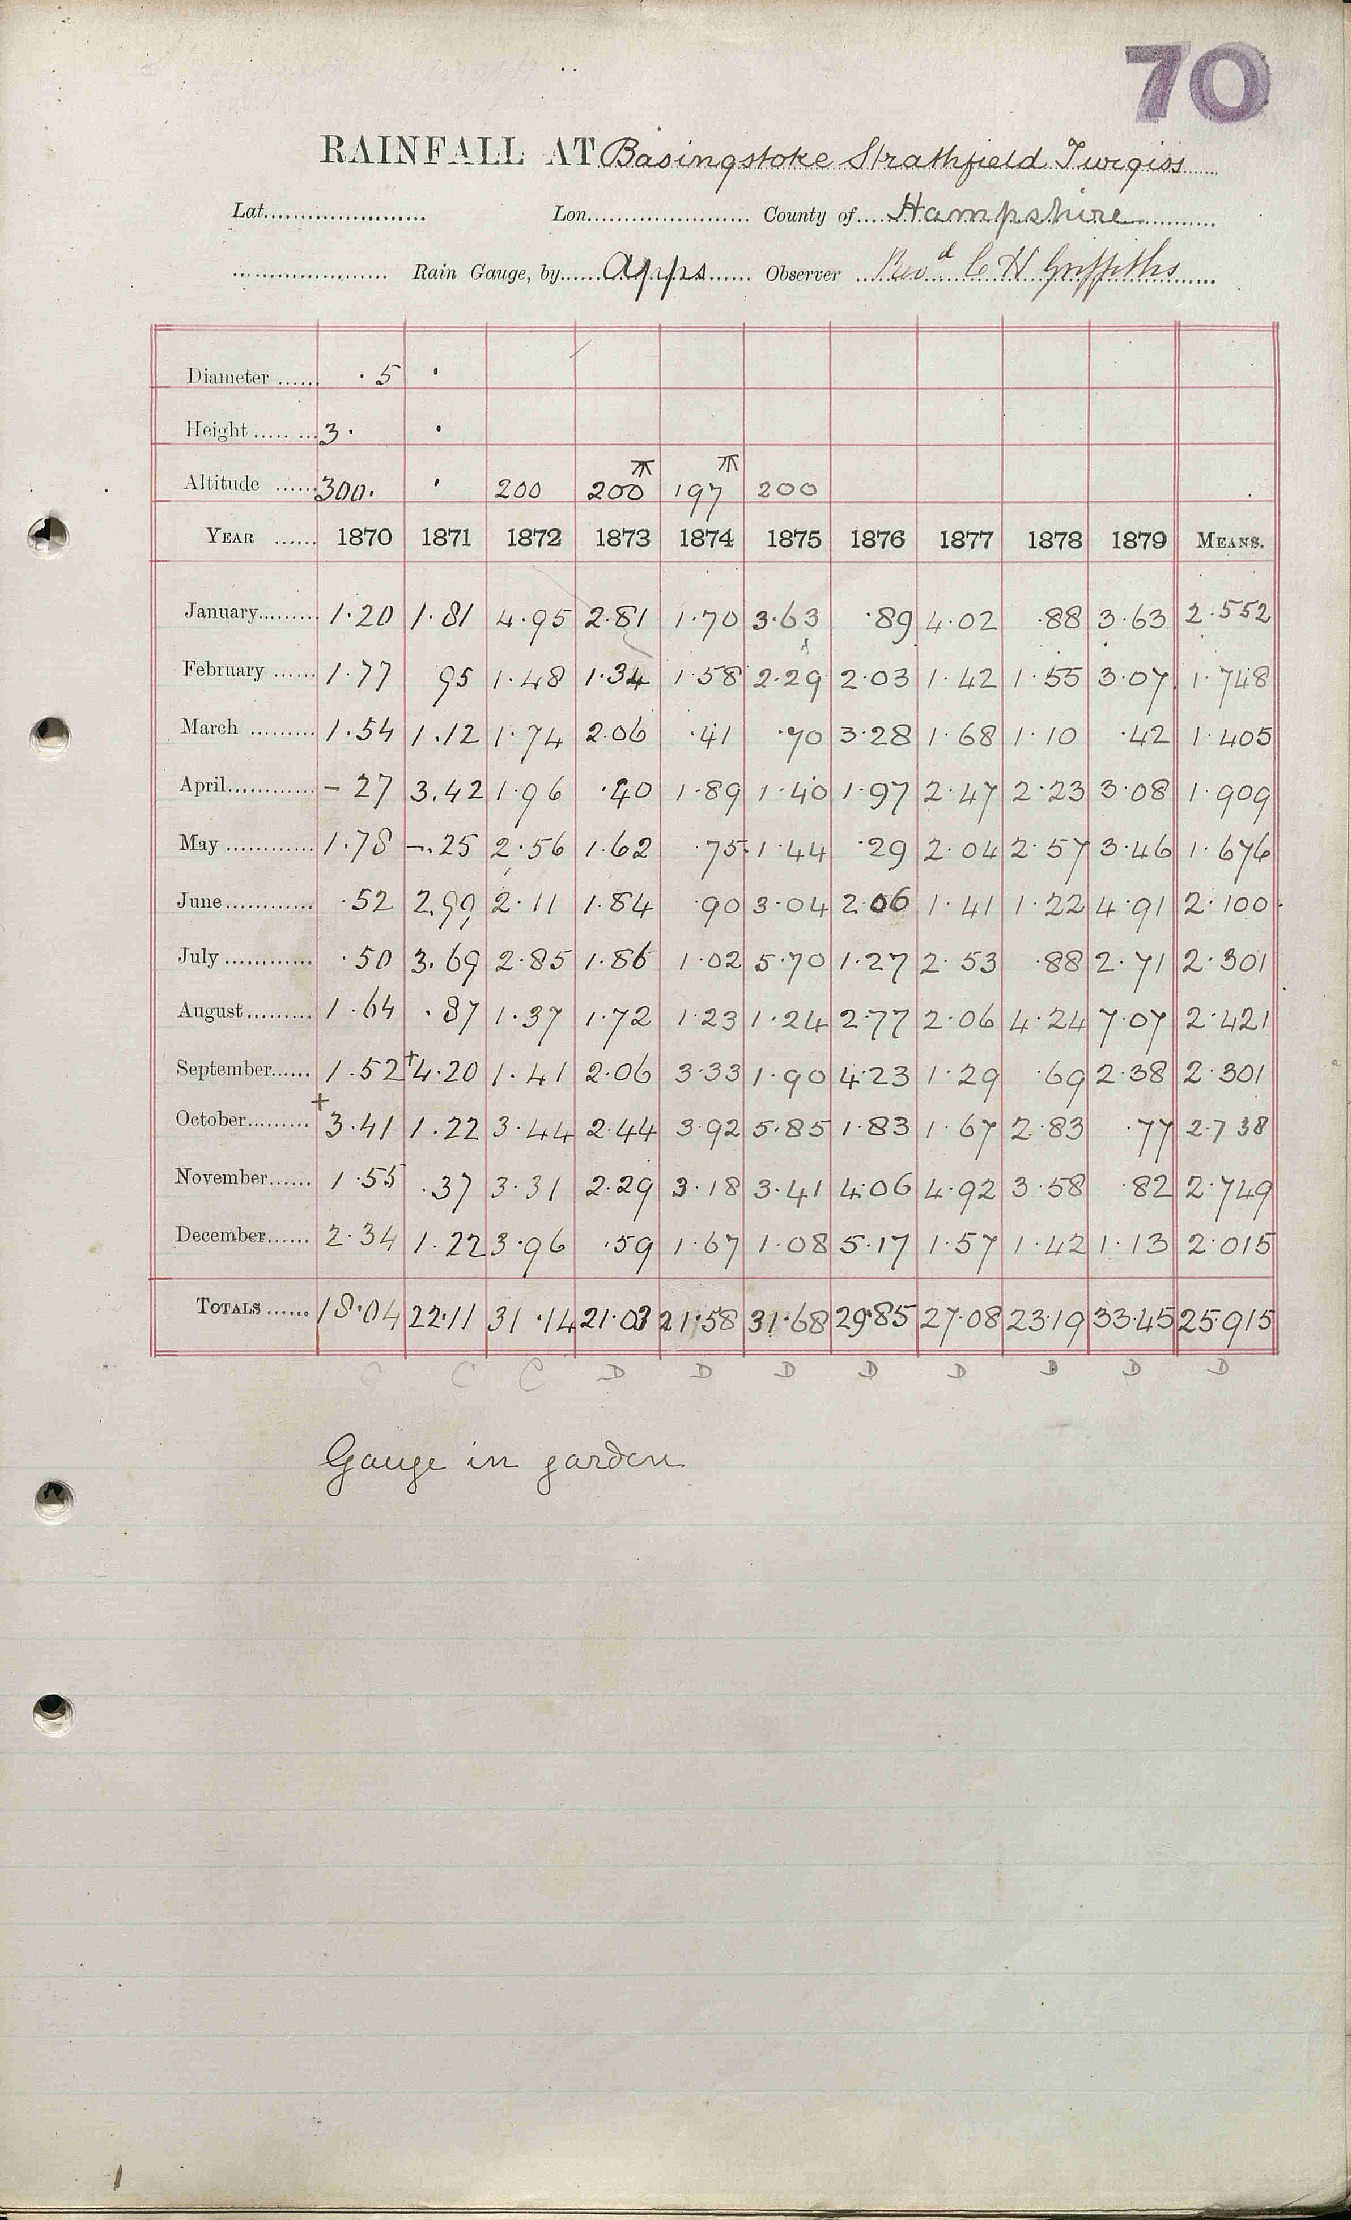 70
RAINFALL AT Basingstoke Strathfield Turgiss
Lat. Lon. County of Hampshire
Rain Gauge, by Apps Observer Revd C H Griffiths
Diameter · 5 ·
Height 3· ·
Altitude 300. · 200 200 197 200
YEAR 1870 1871 1872 1873 1874 1875 1876 1877 1878 1879 MEANS.
January 1·20 1·81 4·95 2·81 1·70 3·63 ·89 4·02 ·88 3·63 2·552
February 1·77 95 1·48 1·34 1·58 2·29 2·03 1·42 1·55 3·07 1·748
March 1·54 1.12 1·74 2·06 ·41 ·70 3·28 1·68 1·10 ·42 1·405
April - 27 3.42 1·96 ·40 1·89 1·40 1·97 2·47 2·23 3·08 1·909
May 1·78 -.25 2·56 1·62 ·75 1·44 ·29 2·04 2·57 3·46 1·676
June ·52 2.99 2·11 1·84 ·90 3·04 2·06 1·41 1·22 4·91 2·100
July ·50 3.69 2·85 1·86 1·02 5·70 1·27 2·53 ·88 2·71 2·301
August 1·64 ·87 1·37 1·72 1·23 1·24 2·77 2·06 4·24 7·07 2·421
September 1·52 +4·20 1·41 2·06 3·33 1·90 4·23 1·29 ·69 2·38 2·301
October +3·41 1.22 3·44 2·44 3·92 5·85 1·83 1·67 2·83 ·77 2·738
November 1·55 ·37 3·31 2·29 3·18 3·41 4·06 4·92 3·58 ·82 2·749
December 2·34 1·22 3·96 ·59 1·67 1·08 5·17 1·57 1·42 1·13 2·015
TOTALS 18·04 22·11 31·14 21·03 21·58 31·68 29·85 27·08 23·19 33·45 25·915
C C C D D D D D D D D
Gauge in garden